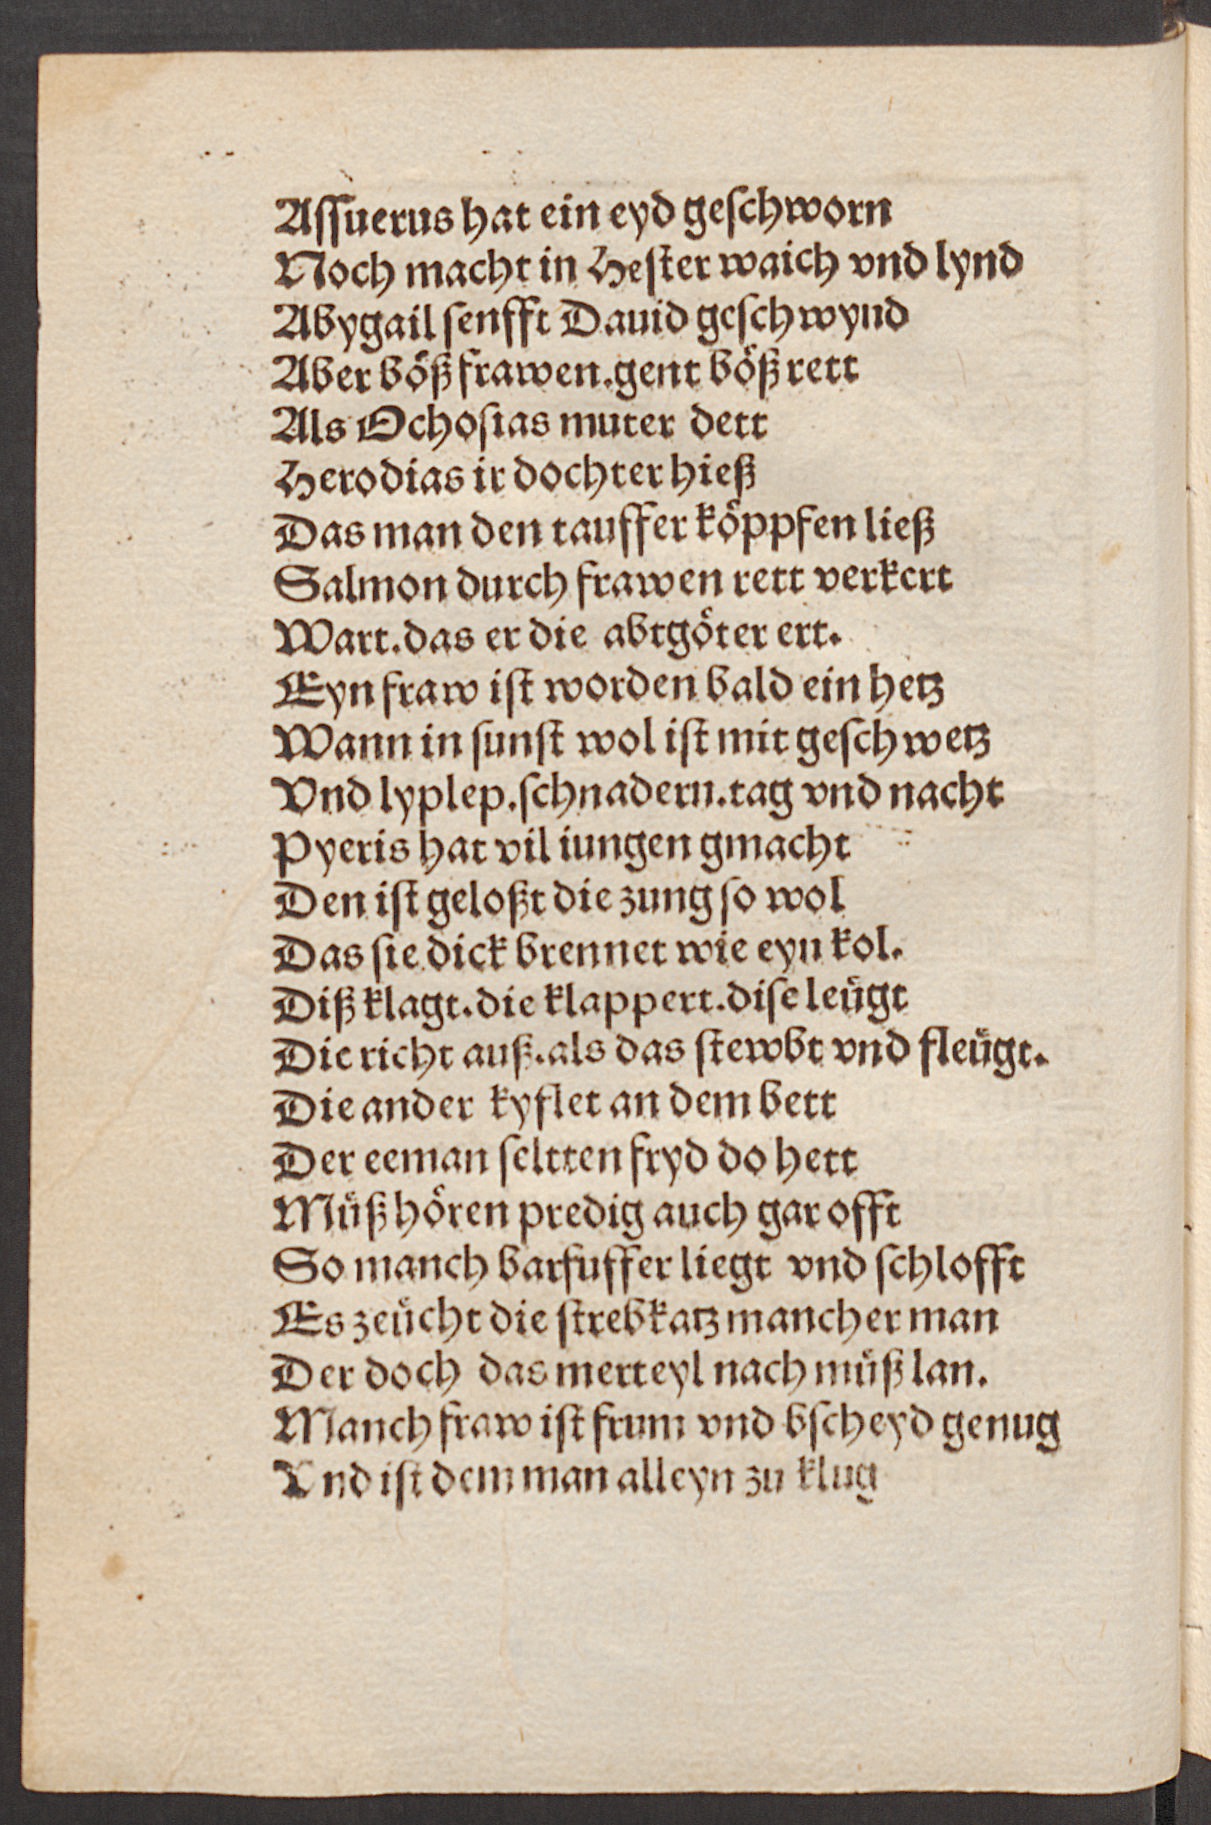 Aſſuerus hat ein eyd geſchworn
Noch macht in Heſter waich vnd lynd
Abygail ſenfft Dauid geſchwynd
Aber böß frawen.gent böß rett
Als Ochoſias muter dett
Herodias ir dochter hieß
Das man den tauffer köppfen ließ
Salmon durch frawen rett verkert
Wart.das er die abtgöter ert.
Eyn fraw iſt worden bald ein hetz
Wann in ſunſt wol iſt mit geſchwetz
Vnd lyplep.ſchnadern.tag vnd nacht
Pyeris hat vil iungen gmacht
Den iſt geloßt die zung ſo wol
Das ſie dick brennet wie eyn kol.
Diß klagt.die klappert.diſe leügt
Die richt auß.als das ſtewbt vnd fleügt.
Die ander kyflet an dem bett
Der eeman ſeltten fryd do hett
Müß hören predig auch gar offt
So manch barfuſſer liegt vnd ſchlofft
Es zeücht die ſtrebkatz mancher man
Der doch das merteyl nach müß lan.
Manch fraw iſt frum vnd bſcheyd genug
Vnd iſt dem man alleyn zu klug